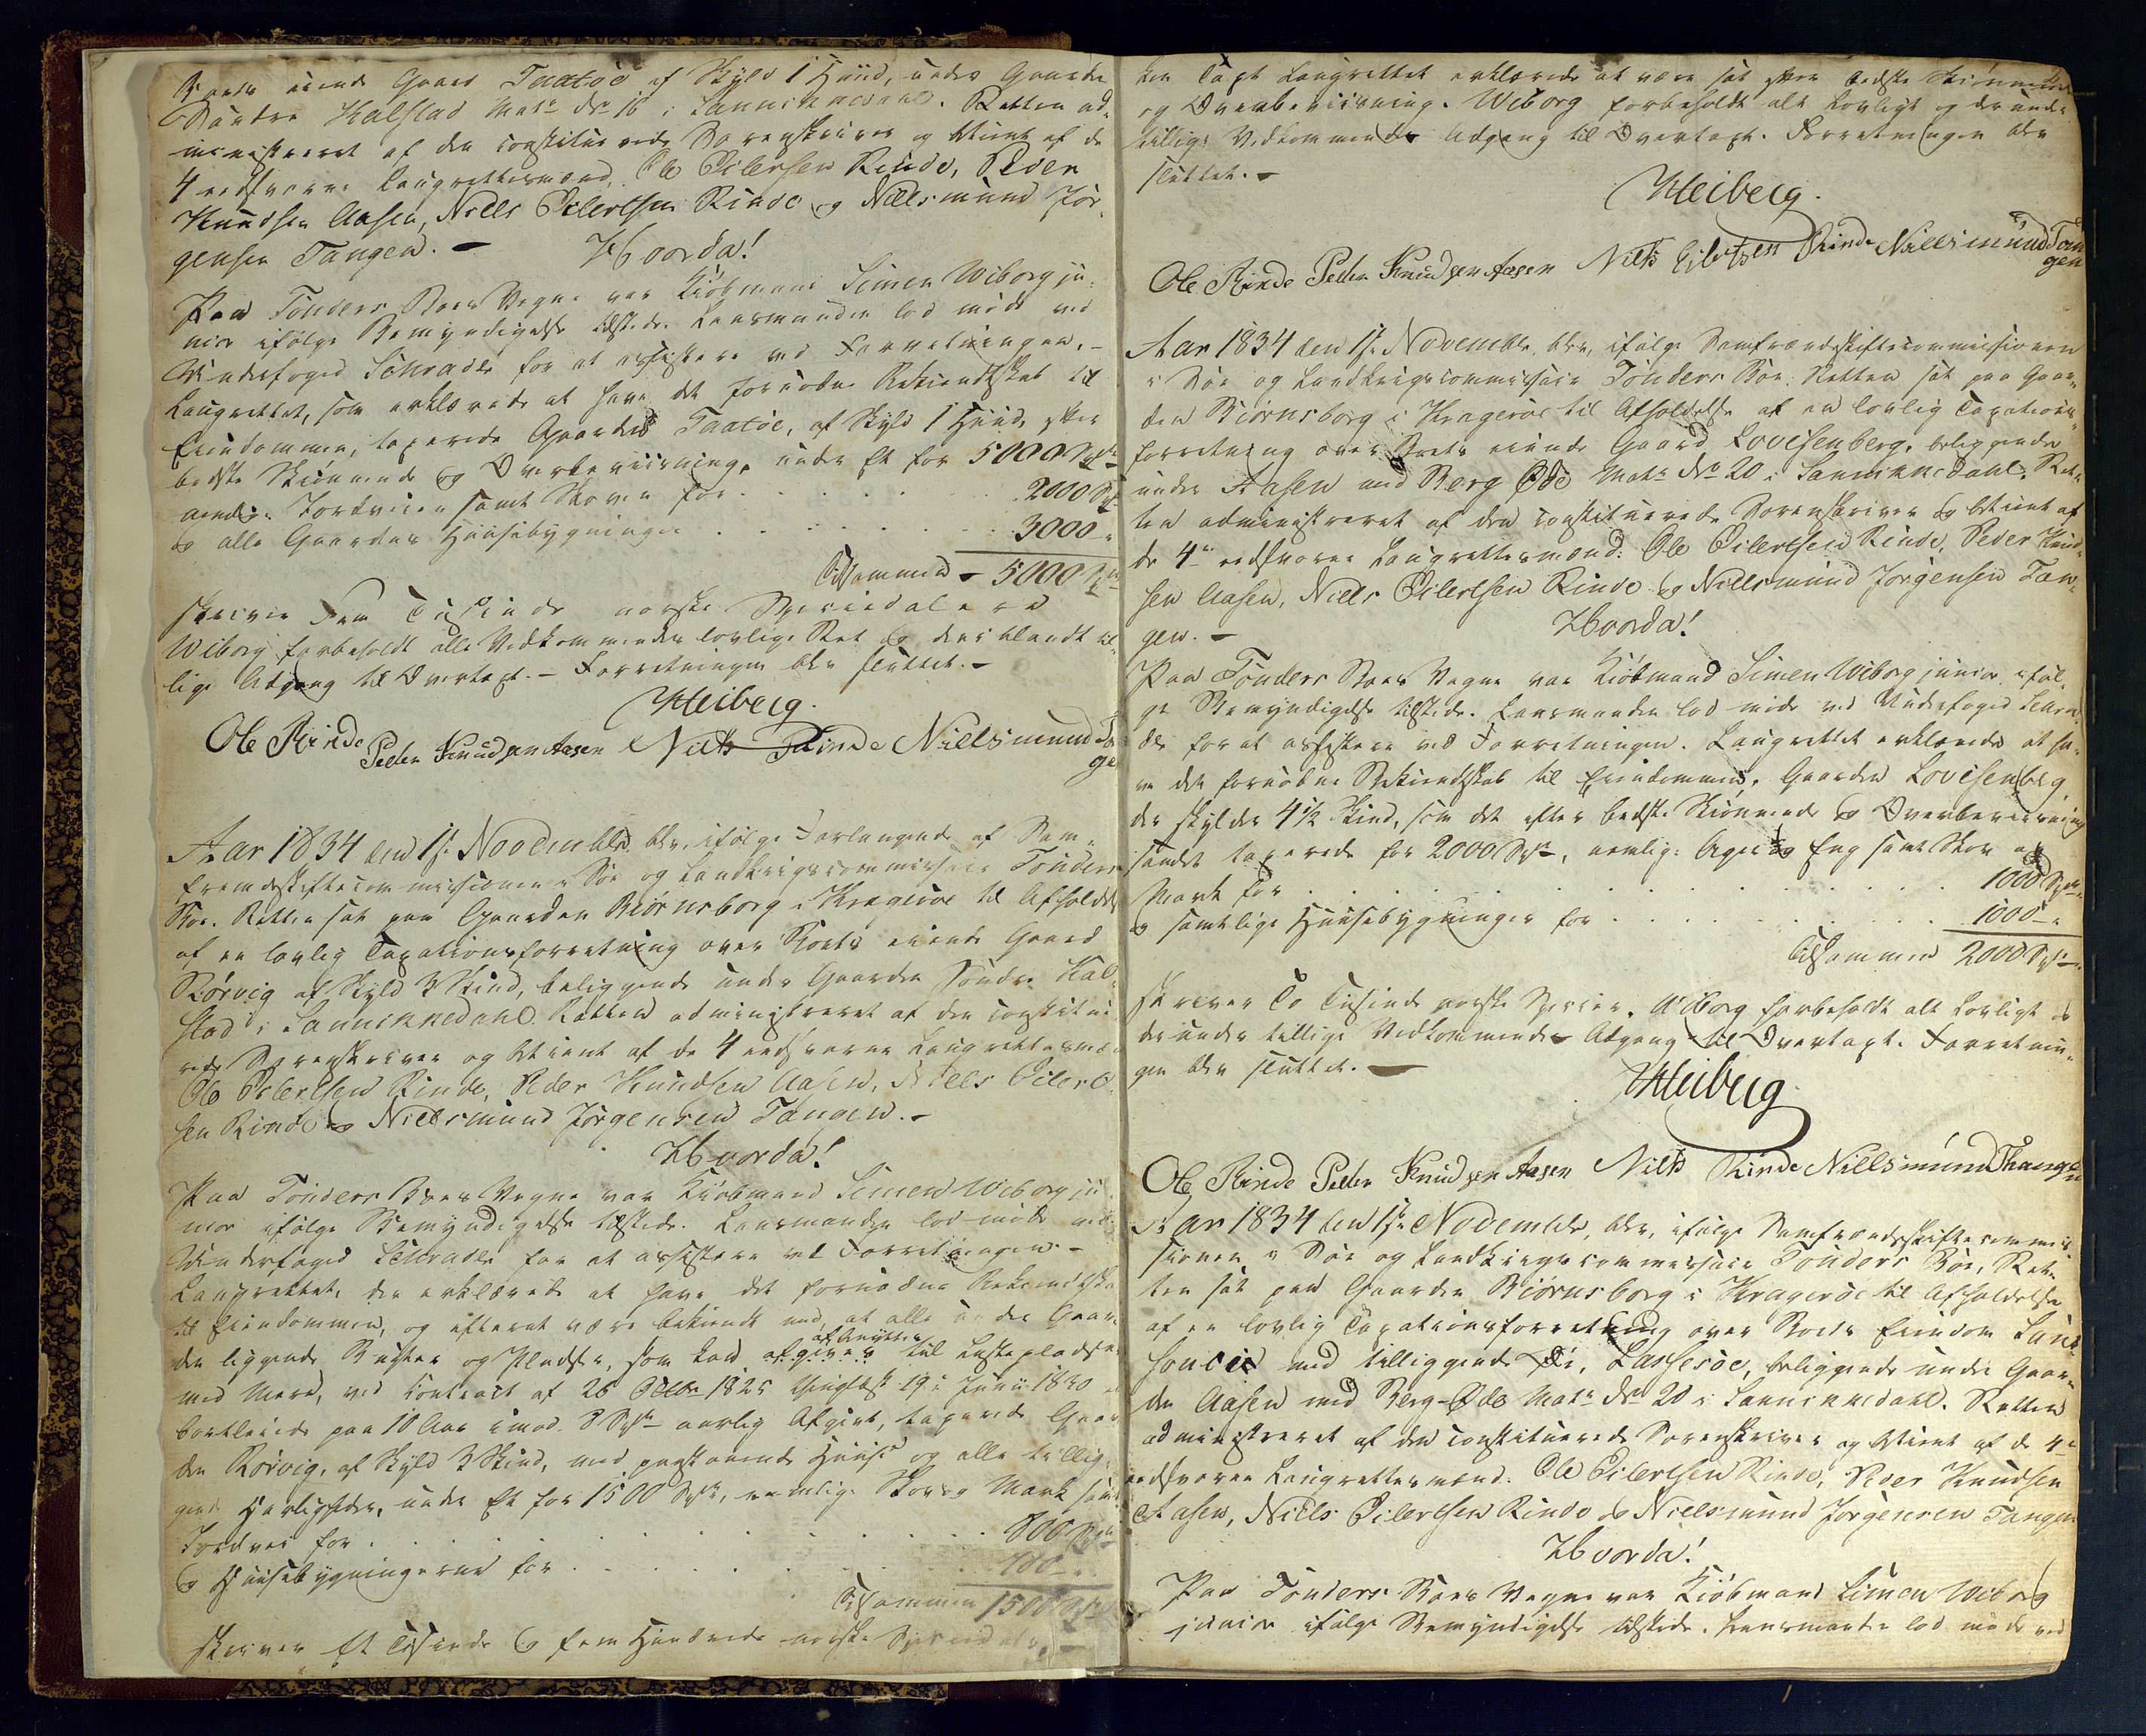 Boets eiende Gaard Taatøe af Skyld 1 Huud, under Gaarden
Søndre Kalstad Matr. No 18 i Sannikedahl. Retten ad-
ministreret af den constituerede Sorenskriver og betient af de
4 eedsvorne Laugrettesmænd, Ole Eilertsen Rinde, Peder
Knudsen Aasen, Niels Eilertsen Rinde og Nillsmund Jør-
gensen Tangen. –
Hvorda!
Paa Tønders Boes Vegne var Kiøbmand Simen Wiborg ju-
nior ifølge Bemyndigelse tilstede. Lensmanden lod møde ved
Underfoged Schrader for at assistere ved Forretningen. –
Laugrettet, som erklærede at have det fornødne Kiendskab til
Eiendommen, taxerede Gaarden Taatøe, af Skyld 1 Huud, efter
bedste Skiønnende og Overbeviisning, under Et for 5000 Spd.
nemlig: Jordveien samt Skoven for . . . . . . 2000 Spd.
og alle Gaardens Huusebygninger . . . . . . . 3000 „
Tilsammen – 5000 Spd.
skriver Fem Tusinde norske Speciedaler
Wiborg forbeholdt alle Vedkommende lovlige Ret og deriblandt til-
lige Adgang til Overtaxt. – Forretningen blev sluttet. –
Heiberg.
Ole Rinde Peder Knudsen Aasen Niels Rinde Nillsmund Tan
gen
Aar 1834 den 1ste November blev, ifølge Forlangende af Sam-
frendeskiftecommissionen i Søe og Landkrigscommissair Tønders
Boe, Retten sat paa Gaarden Biørnsborg i Kragerøe til Afholdelse
af en lovlig Taxationsforretning over Boets eiende Gaard
Rørvig af Skyld 3 Skind, beliggende under Gaarden Søndre Kal-
stad i Sannikkedahl. Retten administreret af den constitue-
rede Sorenskriver og betient af de 4 eedsvorne Laugrettesmænd
Ole Eilertsen Rinde, Peder Knudsen Aasen, Niels Eilert-
sen Rinde og Nillsmund Jørgensen Tangen. –
Hvorda!
Paa Tønders Boes Vegne var Kiøbmand Simen Wiborg ju-
nior ifølge Bemyndigelse tilstede. Lensmanden lod møde ved
Underfoged Schrader for at assistere ved Forretningen. –
Laugrettet, der erklærede at have det fornødne Kiendskab
til Eiendommen, og efterat være bekiendt med, at alle under Gaar-
afbenyttes
den liggende Bugter og Pladse, som kan afgives til Lastepladser
med Mere, ved Contract af 26 Octbr 1825 thinglæst 19 Junii 1830 er
bortleiede paa 10 Aar imod 8 Spd. aarlig Afgivt, taxerede Gaar-
den Rørvig, af Skyld 3 Skind, med paastaaende Huuse og alle tillig-
gende Herligheder, under Et for 1500 Spd., nemlig: Skov og Mark samt
Jordvei for . . . . . . . . . . 800 Spd.
og Huusebygningerne for . . . . . . . . 700 „
Tilsammen 1500 Spd.
skriver Et Tusinde og fem Hundrede norske Speciedaler. –
den Taxt Laugrettet erklærede at være sat efter bedste Skiønnende
og Overbeviisning. Wiborg forbeholdt alt Lovligt og derunder
tillige Vedkommende Adgang til Overtaxt. Forretningen blev
sluttet. –
Heiberg.
Ole Rinde Peder Knudsen Aasen Niels Eilertsen Rinde Nillsmund Tan
gen
Aar 1834 den 1ste November blev, ifølge Samfrændeskiftecommissionen
i Søe og Landkrigscommissair Tønders Boe, Retten sat paa Gaar-
den Biørnsborg i Kragerøe til Afholdelse af en lovlig Taxations-
forretning over Boets eiende Gaard Lovisenberg, beliggende
under Aasen med Berg Øde Matr. No 20 i Sannikkedahl. Ret-
ten administreret af den constituerede Sorenskriver og betient af
de 4re eedsvorne Laugrettesmænd: Ole Eilertsen Rinde, Peder Knud-
sen Aasen, Niels Eilertsen Rinde og Nillsmund Jørgensen Tan-
gen. –
Hvorda!
Paa Tønders Boes Vegne var Kiøbmand Simen Wiborg junior, iføl-
ge Bemyndigelse tilstede. Lensmanden lod møde ved Underfoged Schra-
der for at assistere ved Forretningen. Laugrettet erklærede at ha-
ve det fornødne Kiendskab til Eiendommen, Gaarden Lovisenberg,
der skylder 4 1/2 Skind, som det efter bedste Skiønnende og Overbeviisning
samlet taxerede for 2000 Spd., nemlig: Ager og Eng samt Skov og
Mark for . . . . . . . . . . 1000 Spd.
og samtlige Huusebygninger for . . . . . . . 1000 „
Tilsammen 2000 Spd.
skriver To Tusinde norske Specier. Wiborg forbeholdt alt Lovligt og
derunder tillige Vedkommende Adgang til Overtaxt. Forretnin-
gen blev sluttet. –
Heiberg
Ole Rinde Peder Knudsen Aasen Niels Rinde Nillsmund Thangen
Aar 1834 den 1ste November, blev, ifølge Samfrændeskiftecommis-
sionen i Søe og Landkrigscommissair Tønders Boe, Ret-
ten sat paa Gaarden Biørnsborg i Kragerøe til Afholdelse
af en lovlig Taxationsforretning over Boets Eiendom
med tilliggende Øe, Lasserøe, beliggende under Gaar-
den Aasen med Berg-Øde Matr. No 20 i Sannikedahl. Retten
administreret af den constituerede Sorenskriver og betient af de 4re
eedsvorne Laugrettesmænd: Ole Eilertsen Rinde, Peder Knudsen
Aasen, Niels Eilertsen Rinde og Nillsmund Jørgensen Tangen
Hvorda!
Paa Tønders Boes Vegne var Kiøbmand Simen Wiborg
junior ifølge Bemyndigelse tilstede. Lensmanden lod møde ved